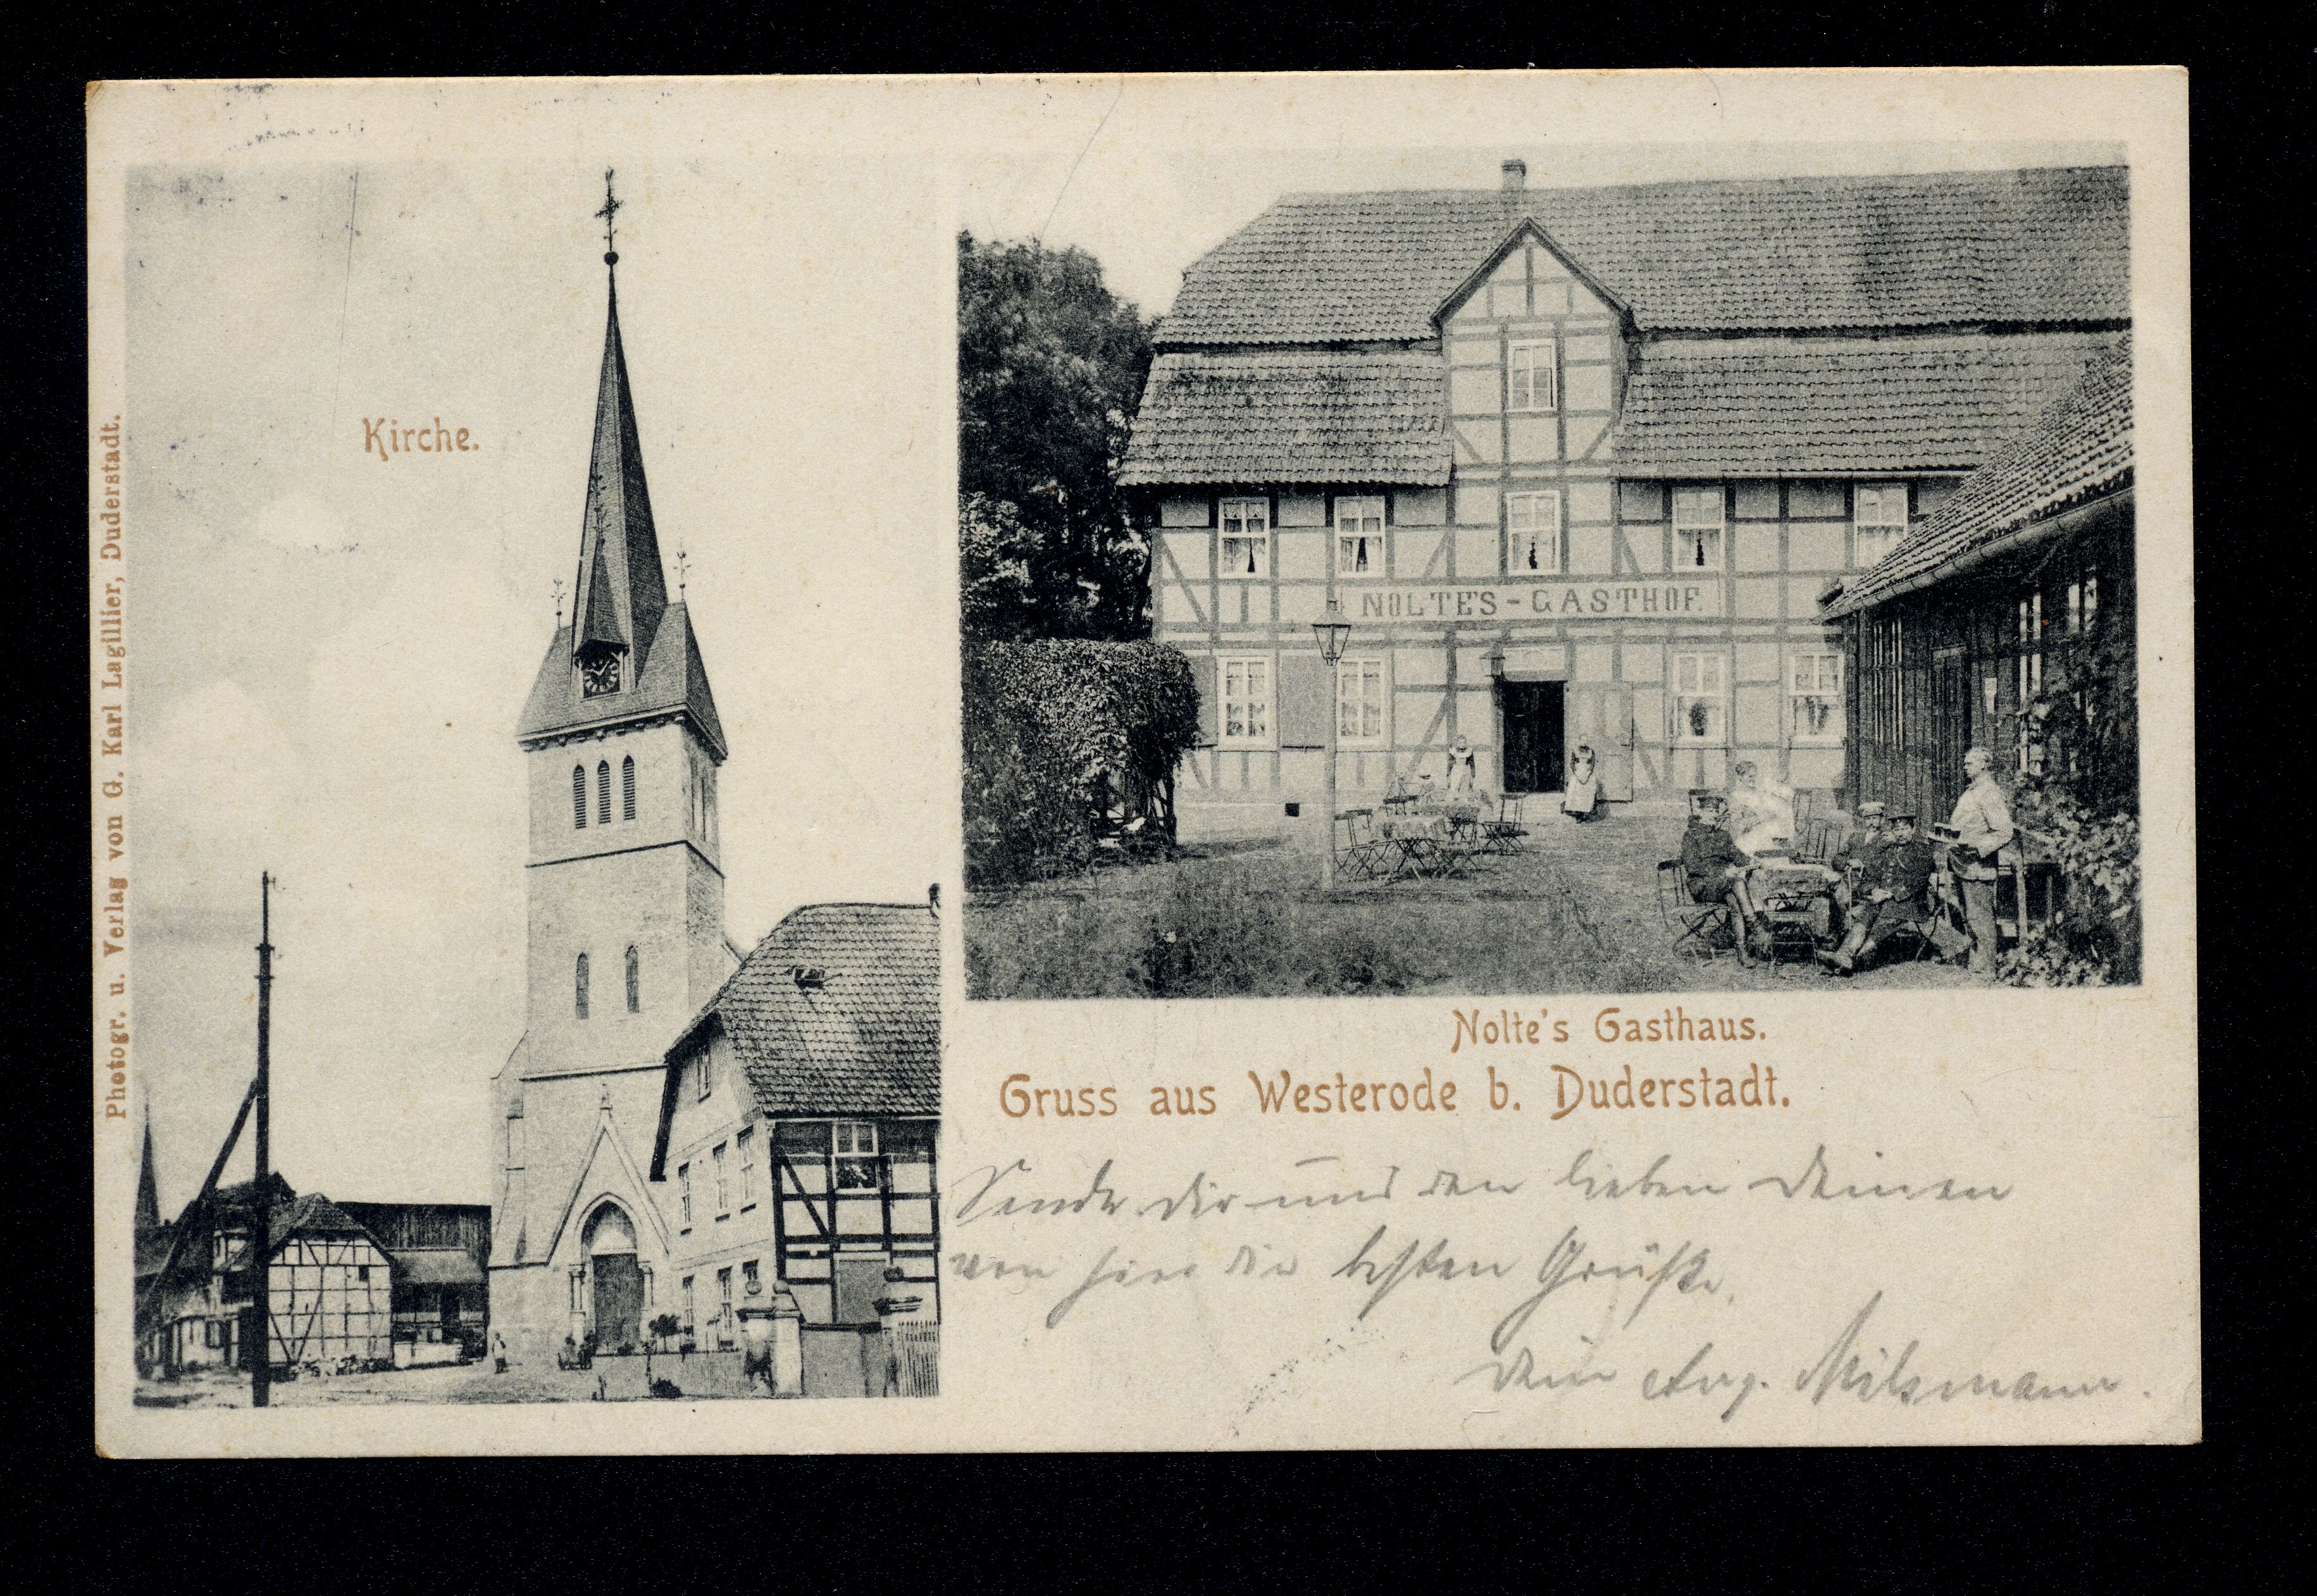 Photogr. u. Verlag von G. Karl Lagillier, Duderstadt.
Kirche.
NOLTE'S-GASTHOF.
Nolte's Gasthaus.
Gruss aus Westerode b. Duderstadt.
Sende dir und den lieben Deinen
von hier die besten Grüße.
Dein Aug.